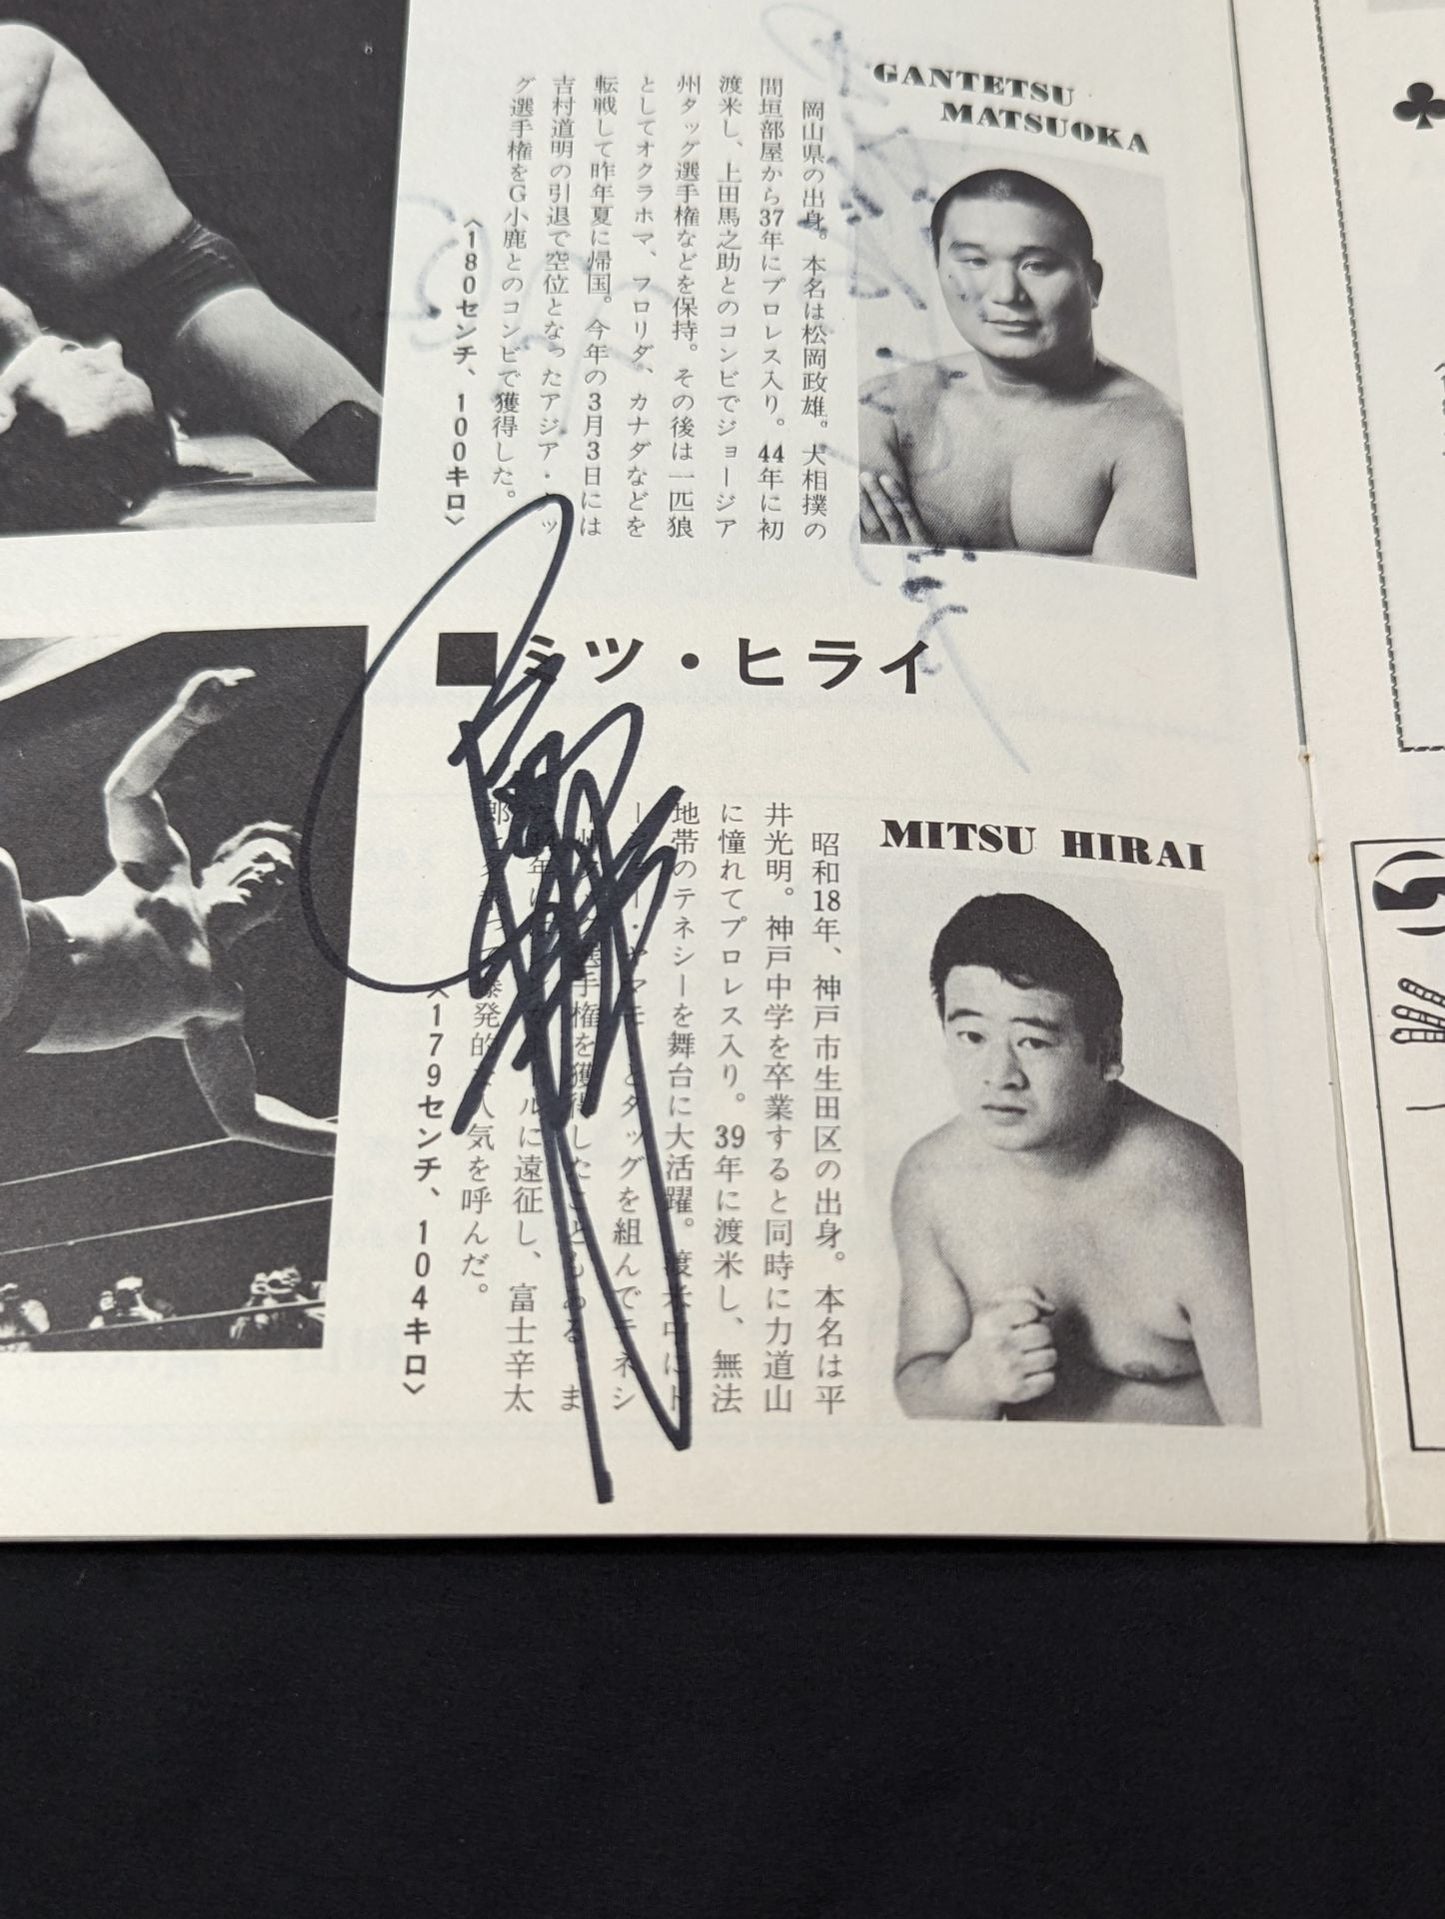 GANTETSU
MATSUOKA
岡山県の出身。本名は松岡政雄。大相撲の
間垣部屋から37年にプロレス入り。44年に初
渡米し、上田馬之助とのコンビでジョージア
州タッグ選手権などを保持。その後は一匹狼
としてオクラホマ、フロリダ、カナダなどを
転戦して昨年夏に帰国。今年の3月3日には
吉村道明の引退で空位となったアジア・タッ
グ選手権をG小鹿とのコンビで獲得した。
〈180センチ、100キロ〉
■ミツ・ヒライ
MITSU HIRAI
昭和18年、神戸市生田区の出身。本名は平
井光明。神戸中学を卒業すると同時に力道山
に憧れてプロレス入り。39年に渡米し、無法
地帯のテネシーを舞台に大活躍。渡米中にト
ー・ヤマモトとタッグを組んでテネシ
選手権を獲得したこともある。ま
ルに遠征し、富士幸太
爆発的な人気を呼んだ。
〈179センチ、104キロ〉